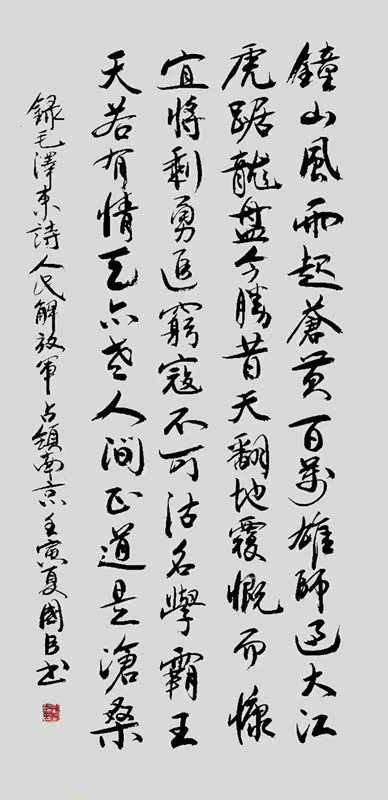 鐘山風雨起蒼黃百萬雄師過大江
虎踞龍盤今勝昔天翻地覆慨而慷
宜將剩勇追窮寇不可沽名學霸王
天若有情天亦老人間正道是滄桑
錄毛澤東詩人民解放軍占領南京壬寅夏國臣書